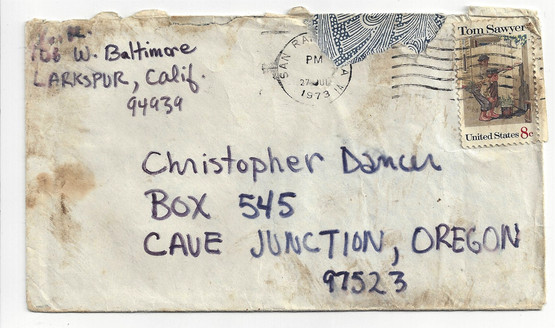 106 W. Baltimore
LARKSPUR, Calif.
94939
SAN RA
PM
27 JUN
1973
Tom Sawyer
United States 8c
Christopher Dancer
BOX 545
CAVE JUNCTION, OREGON
97523